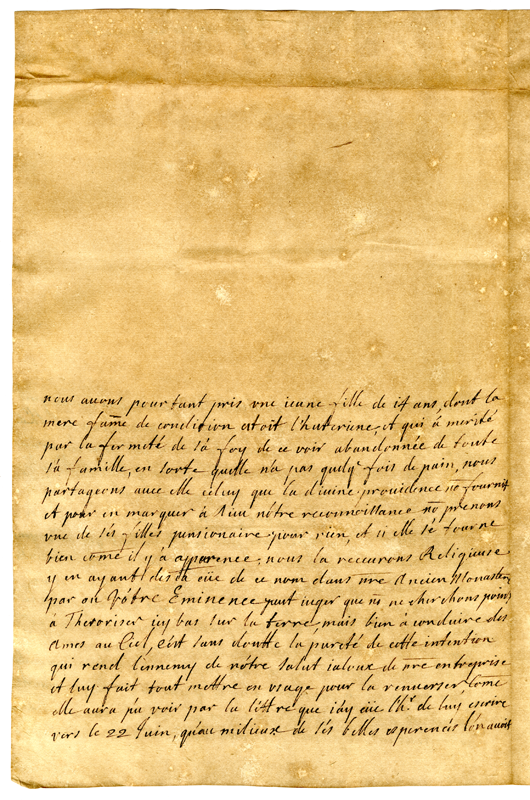 nous auons pourtant pris vne ieune fille de 14 ans, dont la
mere fame de condition etoit l'huteriene, et qui à merité
par la fermeté de sa foy de ce voir abandonnée de toute
sa famille, en sorte quelle n'a pas quelq fois de pain, nous
partageons auec elle celuy que la diuine prouidence no fournit
et pour en marquer à Dieu nôtre reconnoissance no prenons
vne de ses filles pensionaire pour rien, et si elle se tourne
bien come il y à apparence, nous la receurons Religieuse
y en ayant desia eüe de ce nom dans nre Ancien Monastere
par ou Vôtre Eminence peut iuger que ns ne cherchons point
à Thesoriser icy bas sur la terre, mais bien à conduire des
Ames au Ciel, c'est sans doutte la pureté de cette intention
qui rend l'ennemy de nôtre salut ialoux de nre entreprise
et luy fait tout mettre en vsage pour la renuerser Come
elle aura pu voir par la lettre que i'ay eüe l'hr de luy escrire
vers le 22 Juin, qu'au milieux de ses belles esperences l'on auoit